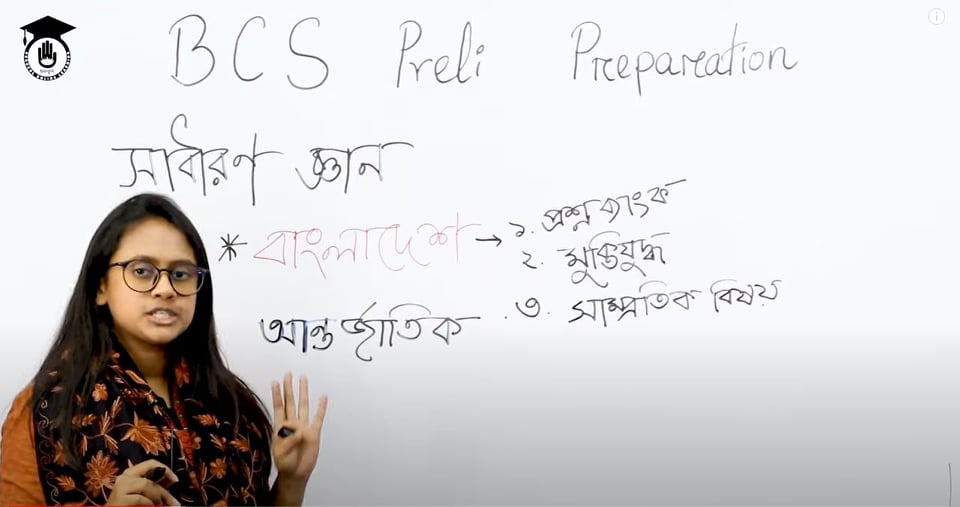 BCS Preli Preparation
সাধারণ জ্ঞান
* বাংলাদেশ → ১. প্রশ্ন ব্যাংক
২. মুক্তিযুদ্ধ
৩. সাম্প্রতিক বিষয়
আন্তর্জাতিক